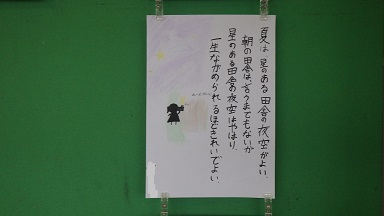 夏は星のある田舎の夜空がよい。
朝の田舎は、言うまでもないが
星のある田舎の夜空はやはり、
一生ながめられるほどきれいでよい。